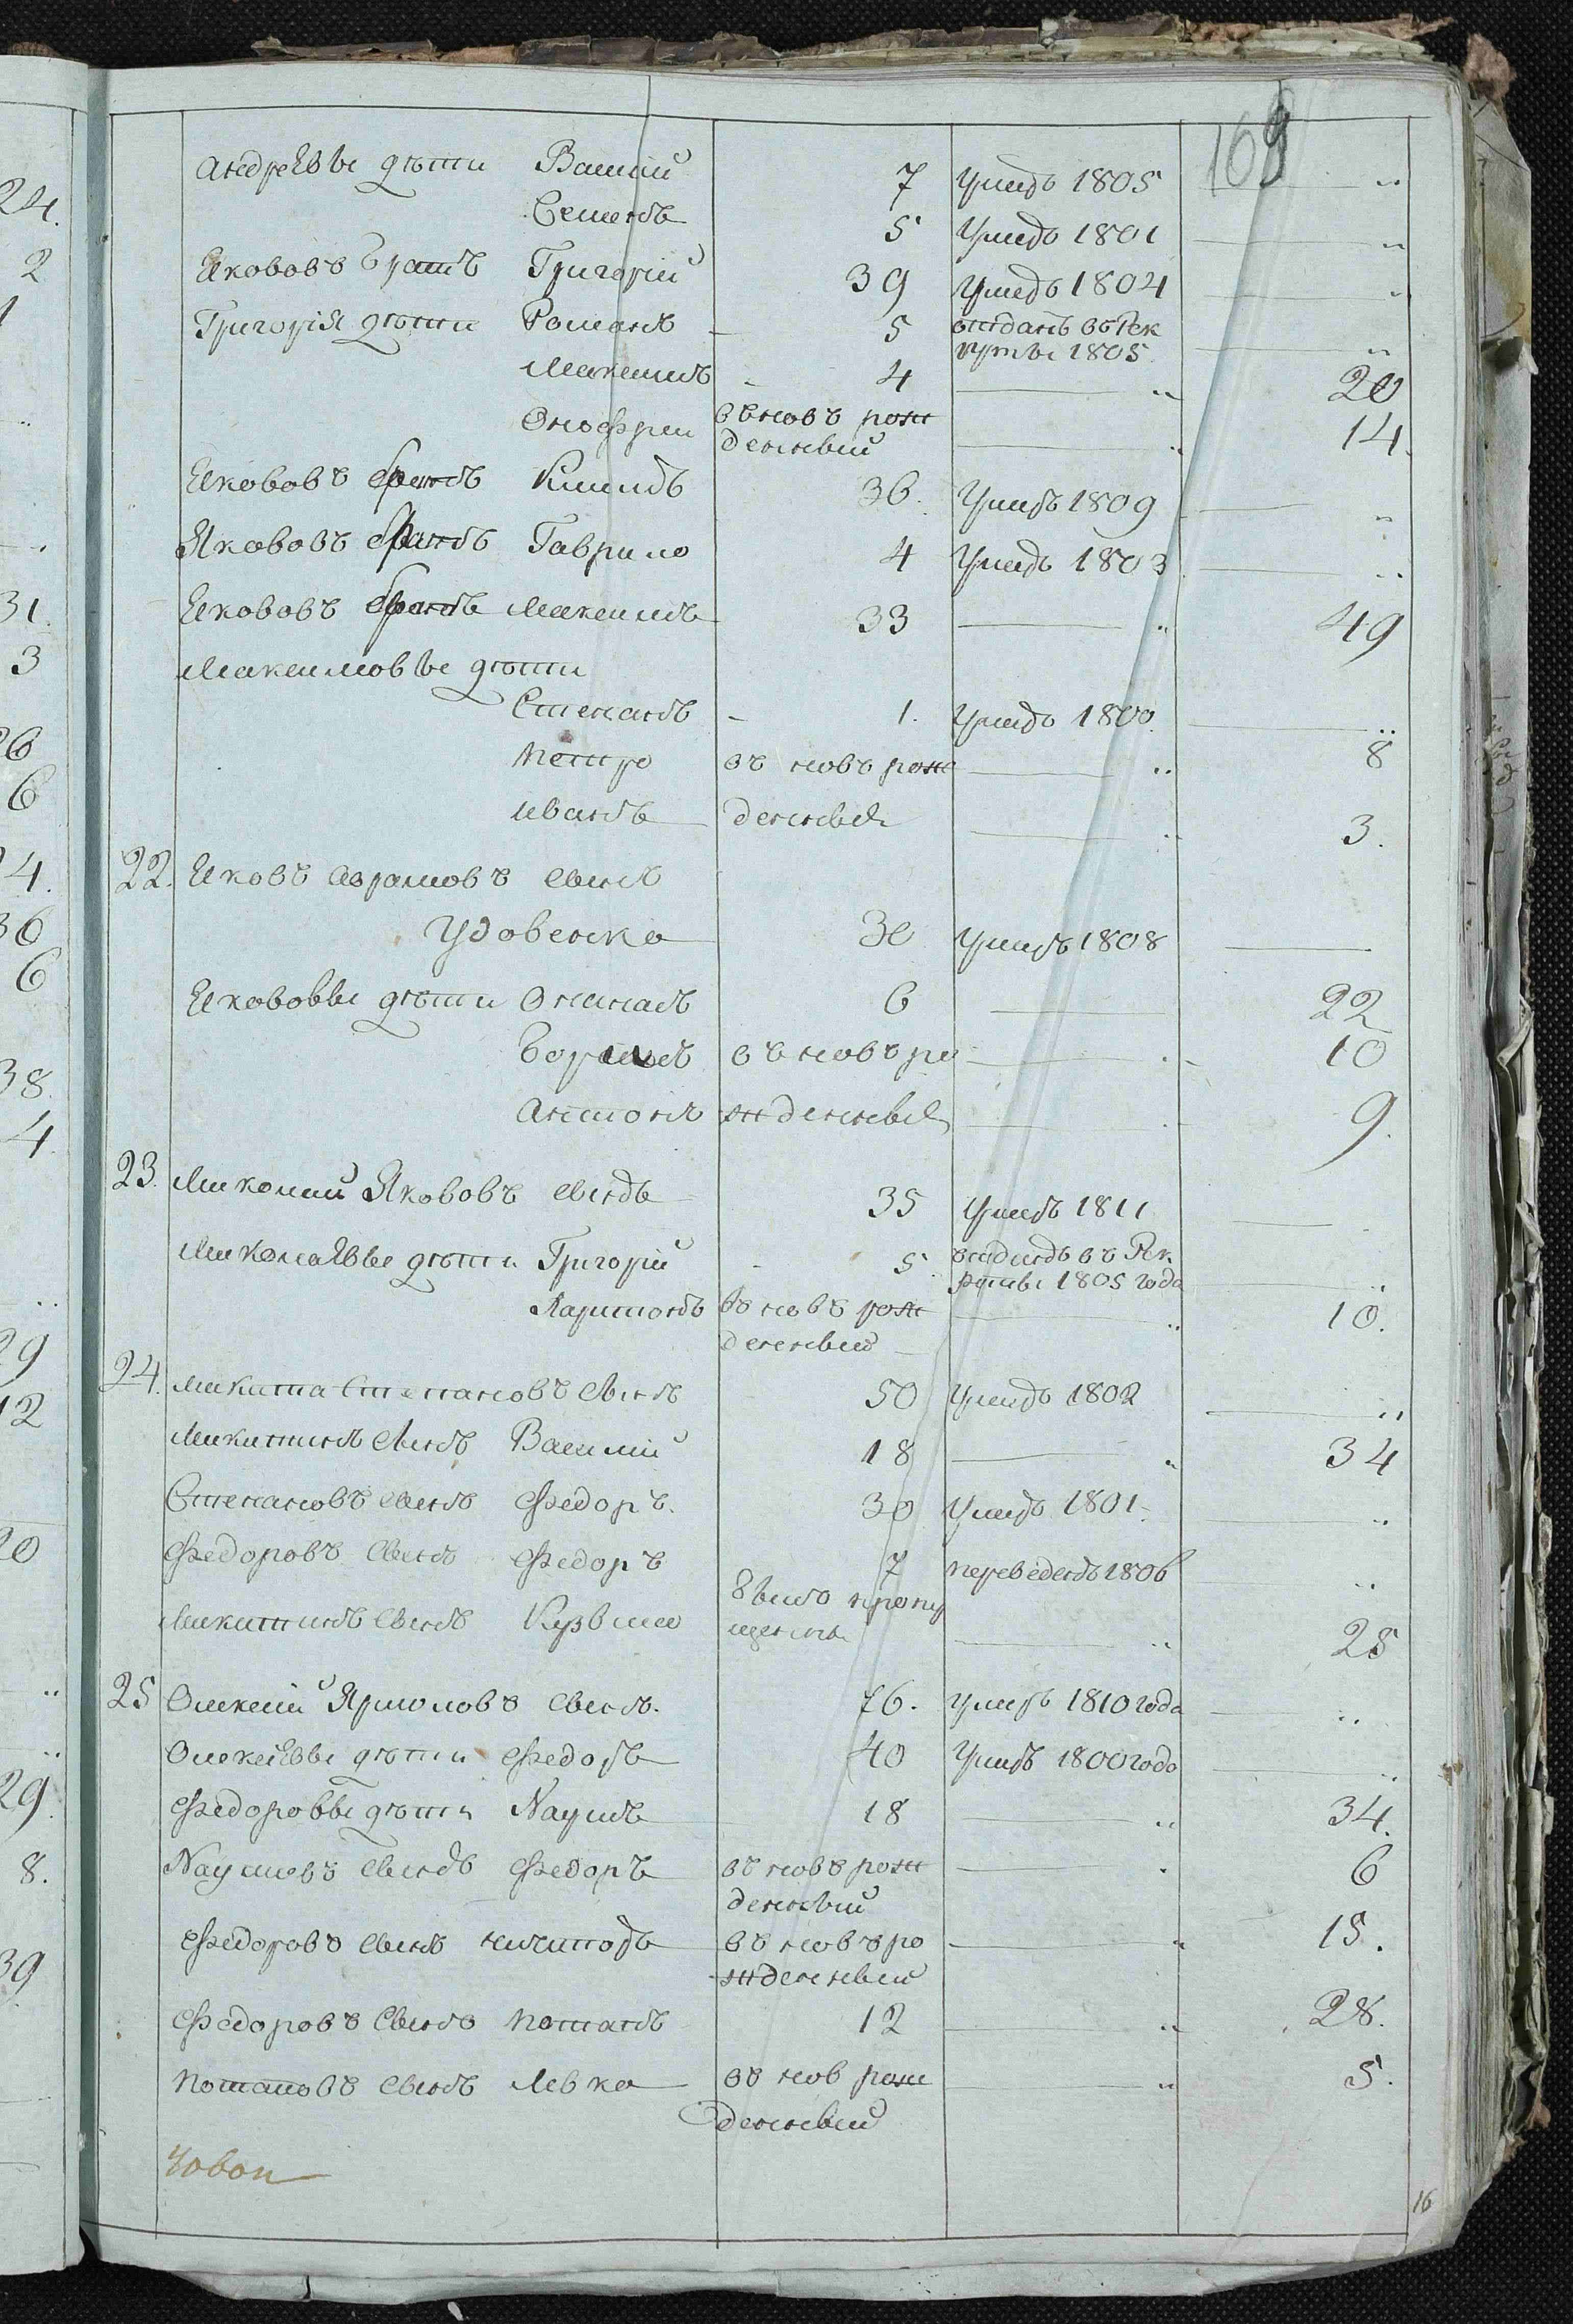 169
Андреевы дѣти Василій 7 Умеръ 1805 — „
Семенъ 5 Умеръ 1801 — „
Яковъ братъ Григорій 39 Умеръ 1804 — „
Григорія дѣти Романъ — 5 отданъ въ Рек
руты 1805 — „
Максимъ - 4 — „ 20
Онофрей въновъ рож
денный — „ 14.
Якововъ братъ Климъ 36. Умеръ 1809 — „
Якововъ братъ Гаврило 4 Умеръ 1803 — „
Якововъ братъ Максимъ 33 — „ 49
Максимовы дѣти
Степанъ - 1. Умеръ 1800. — „
Петро въ новъ рож — „ 8
Иванъ денныя — „ 3.
22. Яковъ Аврамовъ сынъ
Удовенко 30 Умеръ 1808 —
Якововы дѣти Опанасъ 6 — 22
Борисъ въ новъ ро — 10
Антонъ жденныя — 9.
23. Миколай Яковъ сынъ 35 Умеръ 1811 —
Миколаевы дѣти Григорій - 5. отданъ въ Рек
руты 1805 года — „
Ларионъ въ новъ рож — „ 10.
денный
24. Микита Степановъ сынъ 50 Умеръ 1802 — „
Микитинъ сынъ Василій 18 — „ 34
Степановъ сынъ Федоръ. 30 Умеръ 1801. — „
Федоровъ сынъ Федоръ 7 переведенъ 1806 — „
Микитинъ сынъ Кузьма былъ пропу
щенъ — „ 25
25 Олексій Ярмоловъ сынъ. 76. умеръ 1810 года — „
Олексіевы дѣти Федоръ 40 Умеръ 1800 года — „
Федоровы дѣти Наумъ 18 — „ 34.
Наумовъ сынъ Федоръ въ новъ рож — 6
денный
Федоровъ сынъ Ничипоръ въ новъ ро — „ 15.
жденный
Федоровъ сынъ Потапъ 12 — „ 28.
Потаповъ сынъ Левко въ нов рож — „ 5.
денный
16